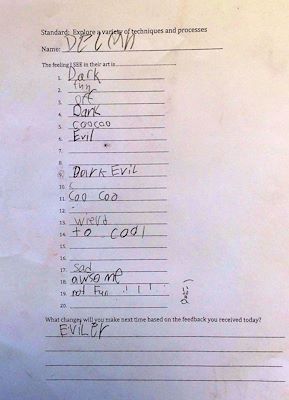 Standard: Explore a variety of techniques and processes
Name: DECLAN
The feeling I SEE in their art is
1. Dark
2. fun
3. off
4. Dark
5. coocoo
6. Evil
7.
8.
9. Dark Evil
10.
11. Coo Coo
12.
13. wield
14. to cool
15.
16.
17. sad
18. awsome
19. not Fun !!!!
20.
What changes will you make next time based on the feedback you received today?
EViLer